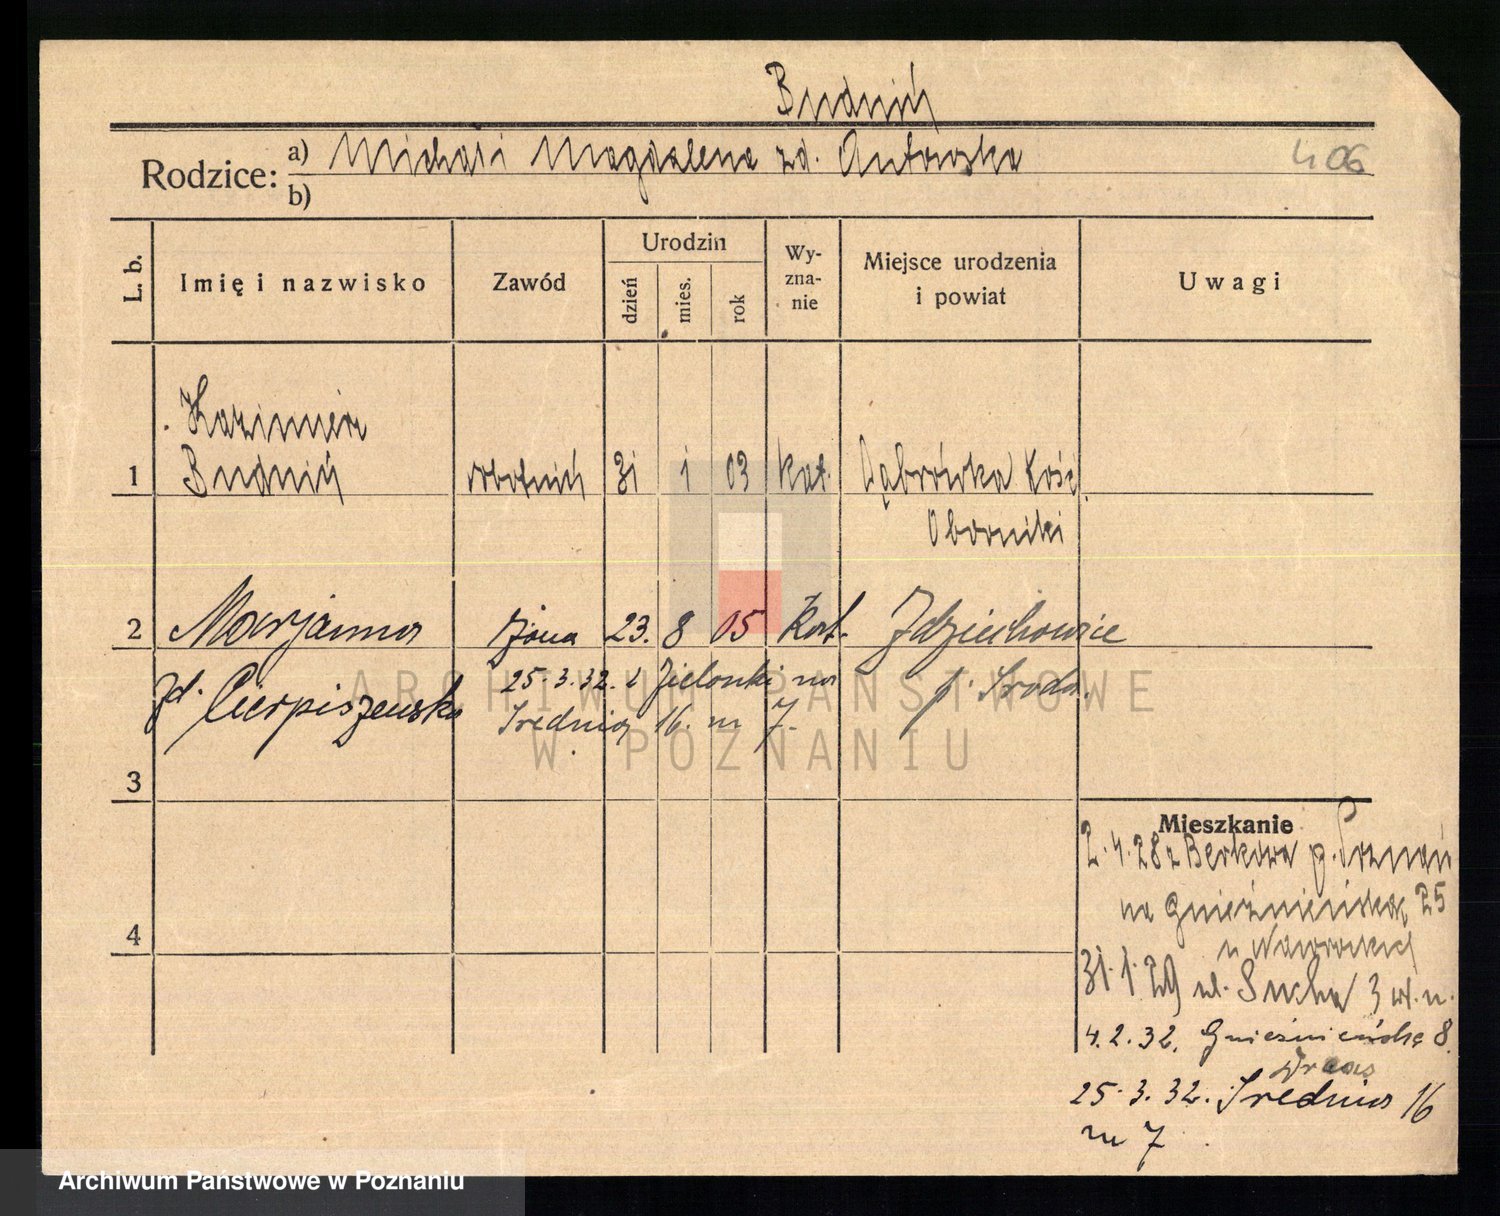 Budnik
Rodzice: a) Michał i Magdalena zd. Antowska 406
b)
L. b. Imię i nazwisko Zawód Urodzin dzień mies. rok Wy-zna-nie Miejsce urodzenia i powiat Uwagi
Kazimierz
1 Budnik robotnik 31 1 03 kat. Dąbrówka Kośc.
Oborniki
2 Marjanna żona 23. 8 05 Kat. Zdziechowice
zd. Cierpiszewska 25.3.32. z Zielonki na p. Środa.
Średnią 16. m 7.
3
Mieszkanie
2.4.28 z p. Poznań
na Gnieźnieńską 25
4
u Wawrockich
31.1.29 ul. Sucha 3 wł. u.
4.2.32. Gnieźnieńska 8.
25.3.32. Średnia 16
m 7
ARCHIWUM PAŃSTWOWE
W POZNANIU
Archiwum Państwowe w Poznaniu